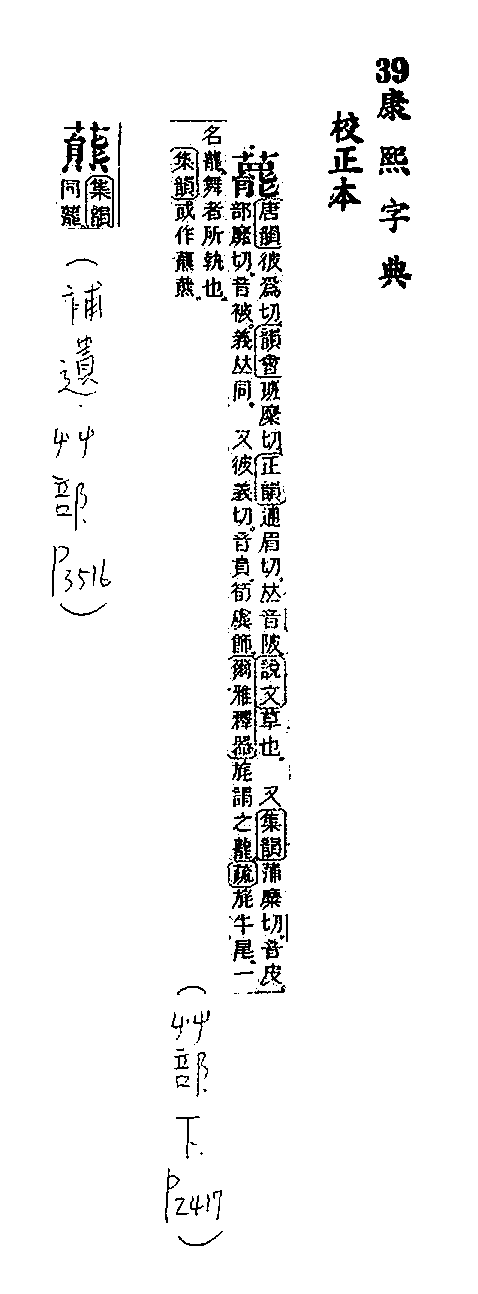 39康熙字典
校正本
藣
唐韻彼爲切韻會班糜切正韻逋眉切𠀤音陂說文草也 又集韻蒲糜切音皮
部靡切音被義𠀤同 又彼義切音賁筍虡飾爾雅釋器旄謂之藣疏旄牛尾一
名藣舞者所執也
集韻或作
(艸部下.P2417)
集韻
同藣
(補遺.艸部.P3516)